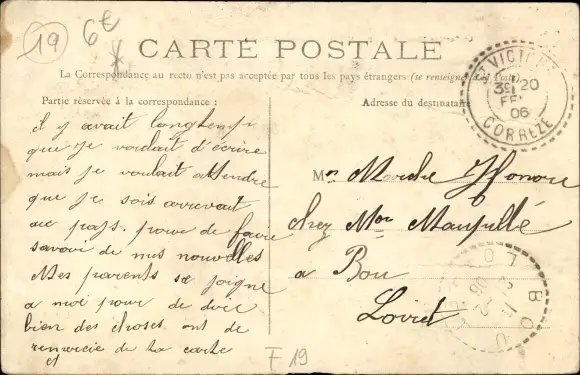 19
6€
CARTE POSTALE
La Correspondance au recto n'est pas acceptée par tous les pays étrangers (se renseigner à la Poste)
Partie réservée à la correspondance :
Adresse du destinataire
ST VICTOUR
3E 20
FEV
06
CORREZE
il y avait longtemps
que je voulait d'écrire
mais je voulait attendre
que je sois arrevait
au pays. pour de faire
savoir de mes nouvelles
Mes parents se joigne
a moi pour de dire
bien des choses ont de
remercie de ta carte
et
Mr Honoré
chez Mr
a Bou
Loiret
BOU
LOIRET
F 19